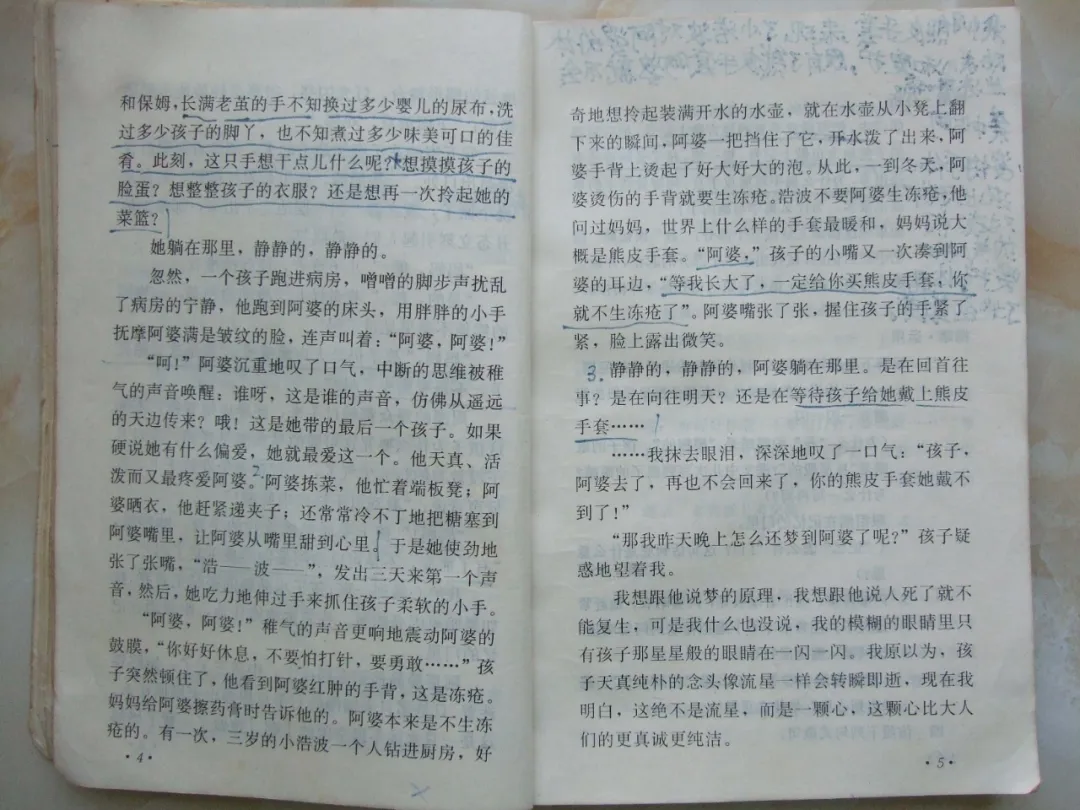 和保姆，长满老茧的手不知换过多少婴儿的尿布，洗
过多少孩子的脚丫，也不知煮过多少味美可口的佳
肴。此刻，这只手想干点儿什么呢？想摸摸孩子的
脸蛋？想整整孩子的衣服？还是想再一次拎起她的
菜篮？
她躺在那里，静静的，静静的。
忽然，一个孩子跑进病房，噌噌的脚步声扰乱
了病房的宁静，他跑到阿婆的床头，用胖胖的小手
抚摩阿婆满是皱纹的脸，连声叫着：“阿婆，阿婆！”
“呵！”阿婆沉重地叹了口气，中断的思维被稚
气的声音唤醒：谁呀，这是谁的声音，仿佛从遥远
的天边传来？哦！这是她带的最后一个孩子。如果
硬说她有什么偏爱，她就最爱这一个。他天真、活
泼而又最疼爱阿婆。阿婆拣菜，他忙着端板凳；阿
婆晒衣，他赶紧递夹子；还常常冷不丁地把糖塞到
阿婆嘴里，让阿婆从嘴里甜到心里。于是她使劲地
张了张嘴，“浩——波——”，发出三天来第一个声
音，然后，她吃力地伸过手来抓住孩子柔软的小手。
“阿婆，阿婆！”稚气的声音更响地震动阿婆的
鼓膜，“你好好休息，不要怕打针，要勇敢……”孩
子突然顿住了，他看到阿婆红肿的手背，这是冻疮。
妈妈给阿婆擦药膏时告诉他的。阿婆本来是不生冻
疮的。有一次，三岁的小浩波一个人钻进厨房，好
·4·
奇地想拎起装满开水的水壶，就在水壶从小凳上翻
下来的瞬间，阿婆一把挡住了它，开水泼了出来，阿
婆手背上烫起了好大好大的泡。从此，一到冬天，阿
婆烫伤的手背就要生冻疮。浩波不要阿婆生冻疮，他
问过妈妈，世界上什么样的手套最暖和，妈妈说大
概是熊皮手套。“阿婆，”孩子的小嘴又一次凑到阿
婆的耳边，“等我长大了，一定给你买熊皮手套，你
就不生冻疮了”。阿婆嘴张了张，握住孩子的手紧了
紧，脸上露出微笑。
3.静静的，静静的，阿婆躺在那里。是在回首往
事？是在向往明天？还是在等待孩子给她戴上熊皮
手套……
……我抹去眼泪，深深地叹了一口气：“孩子，
阿婆去了，再也不会回来了，你的熊皮手套她戴不
到了！”
“那我昨天晚上怎么还梦到阿婆了呢？”孩子疑
惑地望着我。
我想跟他说梦的原理，我想跟他说人死了就不
能复生，可是我什么也没说，我的模糊的眼睛里只
有孩子那星星般的眼睛在一闪一闪。我原以为，孩
子天真纯朴的念头像流星一样会转瞬即逝，现在我
明白，这绝不是流星，而是一颗心，这颗心比大人
们的更真诚更纯洁。
·5·